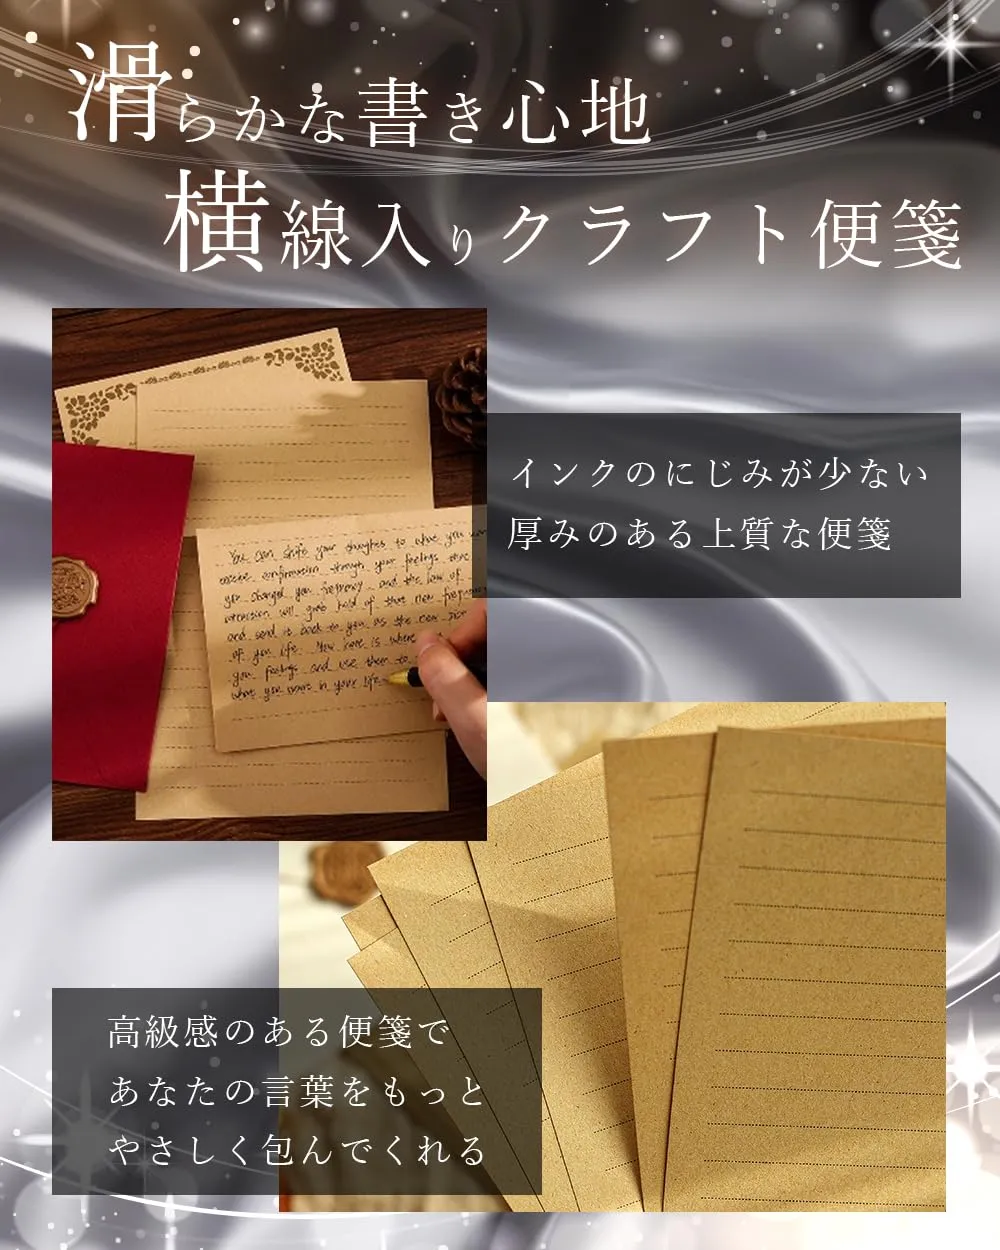 滑らかな書き心地
横線入りクラフト便箋
インクのにじみが少ない
厚みのある上質な便箋
You can shift your thoughts to what you
through your feelings
you changed you frequency and the law of
attraction will grab hold of that new
and send it back to you as the new
of you life. Now here is where
you feelings and use them to
what you want in your life.
高級感のある便箋で
あなたの言葉をもっと
やさしく包んでくれる